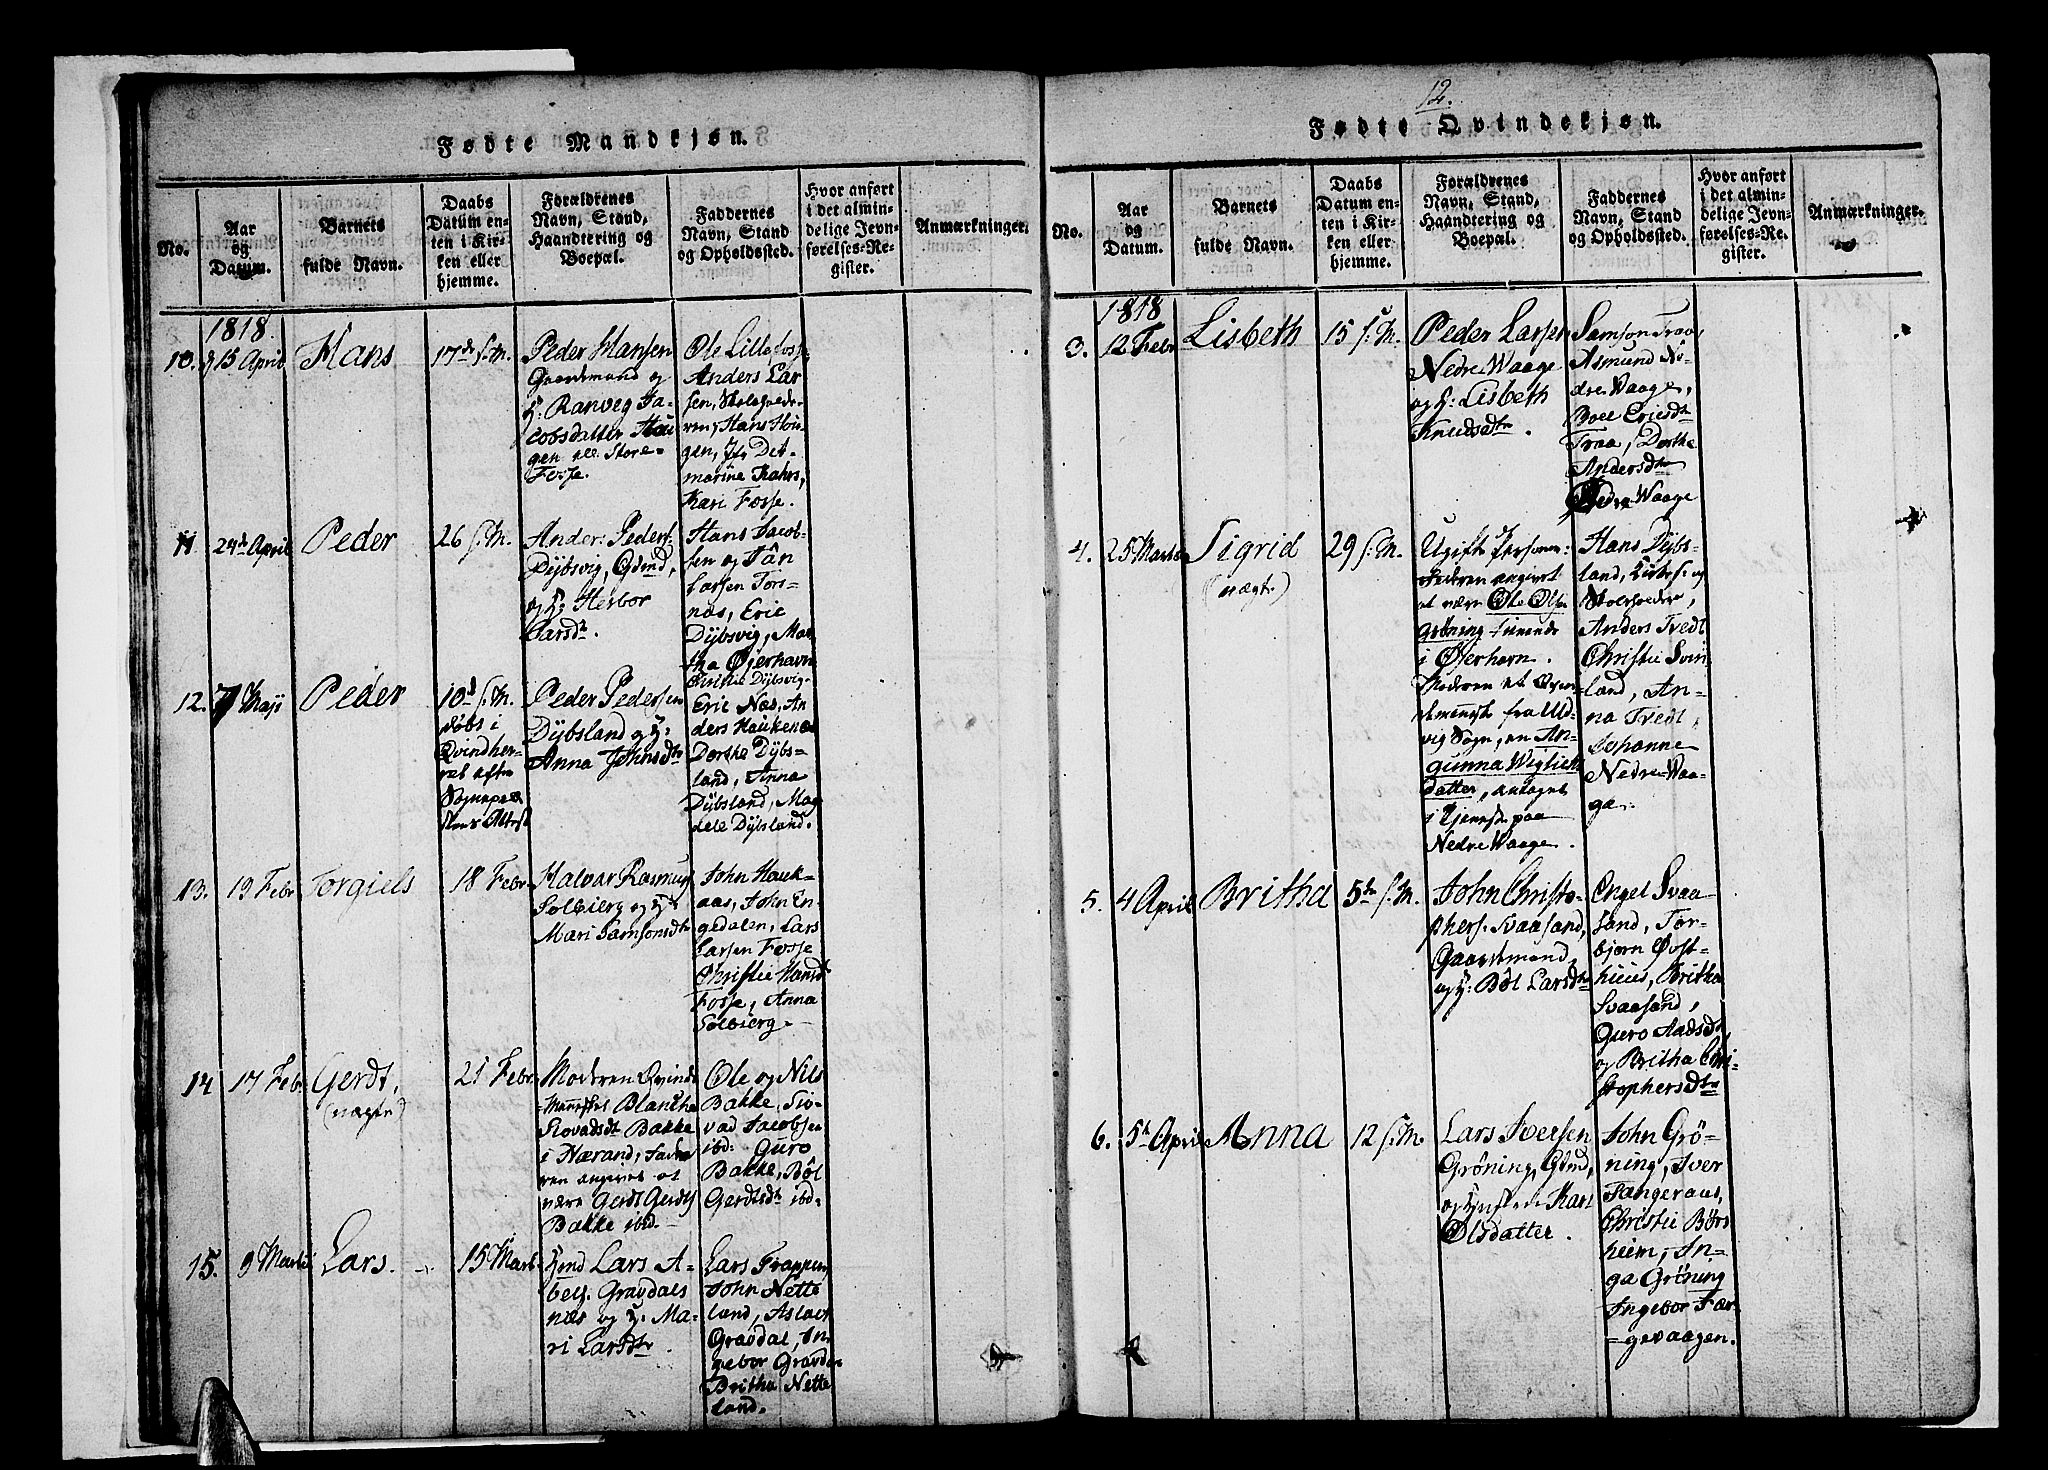 Fødte Mandkjøn.
No.
Aar
og
Datum.
Barnets
fulde Navn.
Daabs
Datum en-
ten i Kir-
ken eller
hjemme.
Forældrenes
Navn, Stand,
Haandtering og
Boepæl.
Faddernes
Navn, Stand
og Opholdssted.
Hvor anført
i det almin-
delige Jevn-
førelses-Re-
gister.
Anmærkninger.
1818.
10.
15 April
Hans
17de S. M.
Peder Hansen
Gaardmand og
H. Ranveg Ja-
cobsdatter Hau-
gen ell. Store-
Fosse.
Ole Lillefosse
Anders Lar
sen, Skoleholde-
ren, Hans Hou-
gen, Jfr Det-
marine Kahrs,
Kari Fosse.
11
24de April
Peder
26 S. M.
Anders Peders:
Dybsvig, Gdmd,
og H. Herbor
Larsdtr.
Hans Jacob-
sen og Jan
Larsen Tors-
næs, Eric
Dybsvig, Mar-
tha Øjerhavn
Christie Dybsvig.
12.
7 Maji
Peder
10de S. M.
døbt i
Qvindher-
ret efter
Sognepræ-
stens Attest
Peder Pedersen
Dybsland og H.
Anna Johnsdtr
Eric Næs, An
ders Haukenæs
Dorthe Dybs-
land, Anna
Dybsland, Mag
dele Dybsland.
13.
19 Febr
Torgiels
18 Febr
Halvar Rasmus
Solbierg og H.
Mari Samsonsdtr
John Hauk-
aas, John En-
gedalen, Lars
Larsen Fosse
Christie Hansdt
Fosse, Anna
Solbierg.
14
17 Febr.
Gerdt,
(uægte)
21 Febr
Moderen Qvinde
Mennesket Blancha
Siovadsdt Bakke
i Nærand, Fade
ren angives at
være Gerdt Gerdts
Bakke ibd.
Ole og Nils
Bakke, Sio-
vad Jacobsen
ibd: Guro
Bakke, Böl
Gerdtsdtr ibd.
15.
9 Martii
Lars.
15 Mart
Gmd Lars A-
bels. Gravdals
næs og H. Ma-
ri Larsdtr.
Lars Trappen,
John Nette
land, Aslach
Gravdal, In
gebor Gravdal
Britha Nette
land.
12.
Fødte Qvindekjøn.
No.
Aar
og
Datum.
Barnets
fulde Navn.
Daabs
Datum en-
ten i Kir-
ken eller
hjemme.
Forældrenes
Navn, Stand,
Haandtering og
Boepæl.
Faddernes
Navn, Stand
og Opholdssted.
Hvor anført
i det almin-
delige Jevn-
førelses-Re-
gister.
Anmærkninger.
1818
3.
12 Febr
Lisbeth
15 S. M.
Peder Larsen
Nedre Waage
og H: Lisbeth
Knudsdtr.
Samson Traa,
Asmund Ne-
dre Waage,
Boel Ericsdtr
Traa, Dorthe
Andersdtr
Nedre Waage
4.
25 Martii
Sigrid
(uægte)
29 S. M.
Ugifte Personer:
Faderen angives
at være Ole Olsen
Grøning tienende
i Øierhavn.
Moderen et Qvin-
demenneske fra Uld-
vig Sogn, en An-
gunna Wigliets
datter, antaget
i Tjeneste paa
Nedre Waage.
Hans Dybs-
land, Kirkes. og
Skoleholder,
Anders Tvedt
Christie Svin-
land, An-
na Tvedt,
Johanne
Nedre Waa-
ge.
5.
4 April
Britha
5te S. M.
John Christo-
phers. Svaasand,
Gaardmand,
og H. Böl Larsdtr
Engel Svaa-
sand, Tor-
bjørn Øvst-
huus, Britha
Svaasand,
Guro Aadsdtr,
og Britha Chri-
stophersdtr
6.
5te April
Anna
12 S. M.
Lars Iversen
Grøning, Gmd,
og Hustrue Kari
Olsdatter.
John Grö-
ning, Iver
Tangeraas,
Christie Børs-
heim, In-
ga Grøning
Ingebor Fær-
gevaagen.